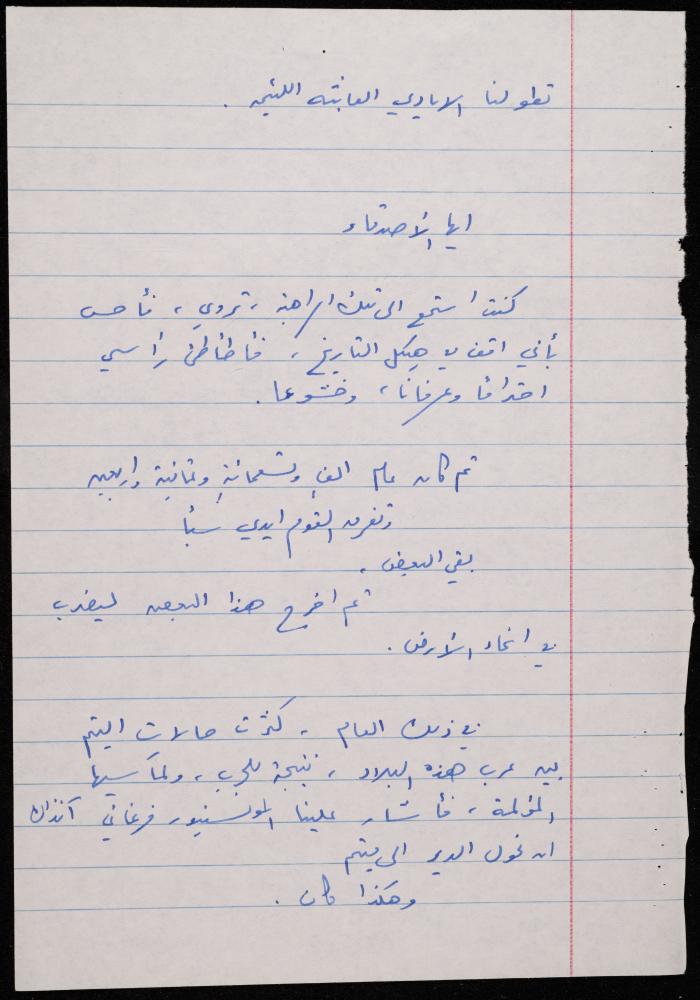 تطولنا الايادي العابثه اللئيمه .
ايها الأصدقاء
كنت استمع الى تلك الراهبة ، تروي ، فأحس
بأني اقف في هيكل التاريخ ، فأطأطئ رأسي
احتراما وعرفانا ، وخشوعا .
ثم كان عام الف وتسعمائة وثمانية واربعين
وتفرق القوم ايدي سبأ
بقي البعض .
ثم اخرج هذا البعض ليضرب
في انحاء الأرض .
في ذلك العام ، كثرت حالات اليتم
بين عرب هذه البلاد ، نتيجة للحرب ، ولمآسيها
المؤلمة ، فأشار علينا المونسنيور فرغاني آنذاك
ان نحول الدير الى ميتم
وهكذا كان .